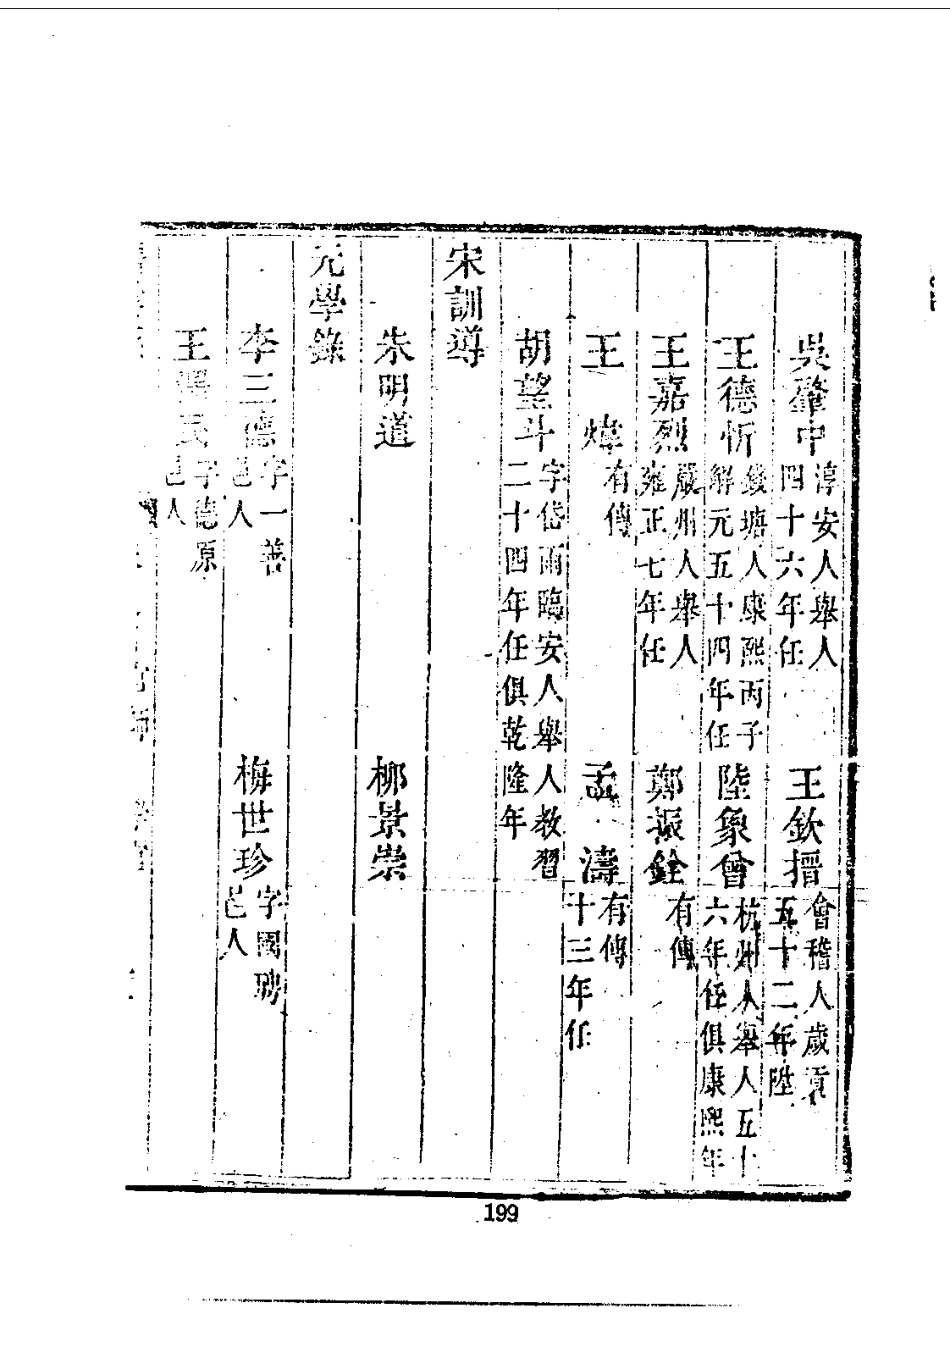 吳肇中 淳安人舉人四十六年任 王欽搢 會稽人歲貢五十二年陞
王德忻 錢塘人康熙丙子解元五十四年任 陸象曾 杭州人舉人五十六年任俱康熙年
王嘉烈 嚴州人舉人雍正七年任 鄭振銓 有傳
王煒 有傳 孟濤 有傳十三年任
胡望斗 字岱雨臨安人舉人教習二十四年任俱乾隆年
宋訓導
朱明道 柳景崇
元學錄
李三德 字一善邑人 梅世珍 字國聘邑人
王 民 字德原邑人
199